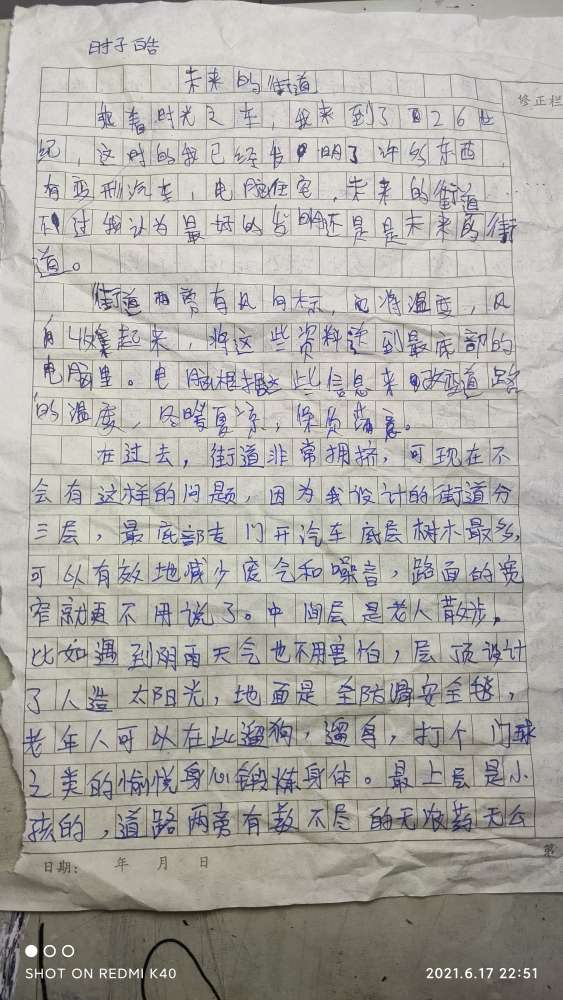 时子皓
未来的街道
修正栏
乘着时光之车，我来到了26世
纪，这时的我已经发明了许多东西，
有变形汽车，电脑住宅，未来的街道
不过我认为最好的发明还是是未来的街
道。
街道两旁有风向标，它将温度，风
向收集起来，将这些资料送到最底部的
电脑里。电脑根据这些信息来改变道路
的温度，冬暖夏凉，保你满意。
在过去，街道非常拥挤，可现在不
会有这样的问题，因为我设计的街道分
三层，最底部专门开汽车底层树木最多，
可以有效地减少废气和噪音，路面的宽
窄就更不用说了。中间层是老人散步，
比如遇到阴雨天气也不用害怕，层顶设计
了人造太阳光，地面是全防滑安全毯，
老年人可以在此遛狗，遛鸟，打个门球
之类的愉悦身心锻炼身体。最上层是小
孩的，道路两旁有数不尽的无农药无公
第
日期： 年 月 日
SHOT ON REDMI K40
2021.6.17 22:51